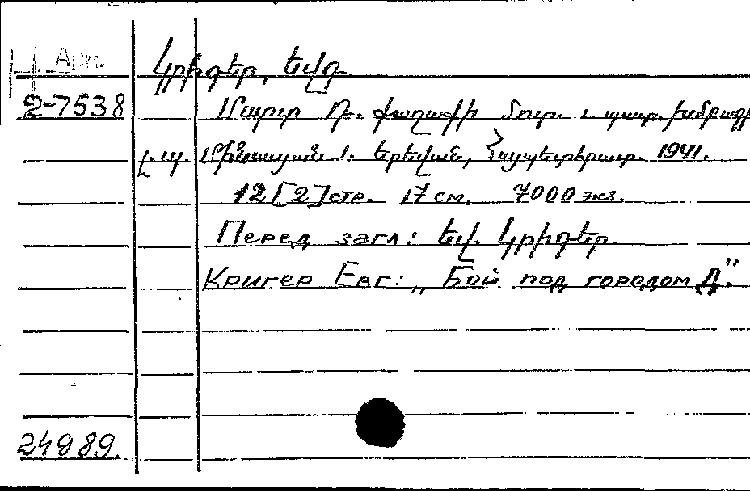 Арм.
Կրիգեր, Եվգ.
2-7538 Մարտ Դ. քաղաքի մոտ. պատ. խմբագիր
Լ. Վ. Մինասյան: Երևան, Հայպետհրատ. 1941.
12 [2] стр. 17 см. 7000 экз.
Перед загл: Եվ. Կրիգեր.
Кригер Евг: „Бой под городом Д".
24989.